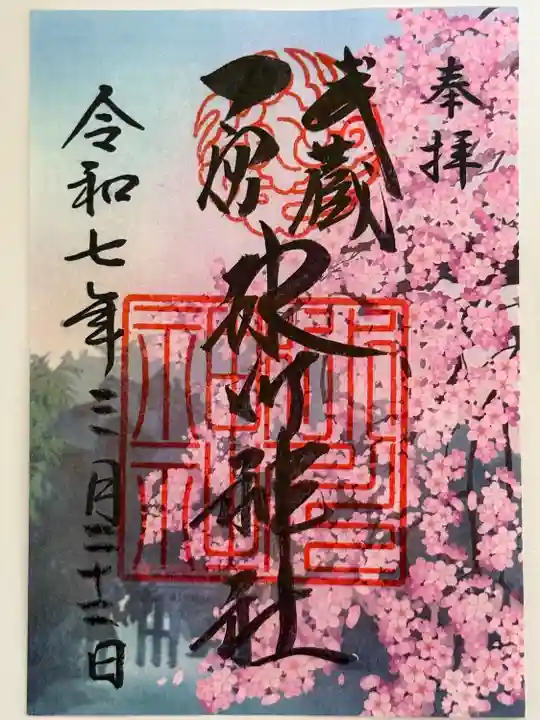 奉拝
武蔵
一宮
氷川神社
令和七年三月二十二日